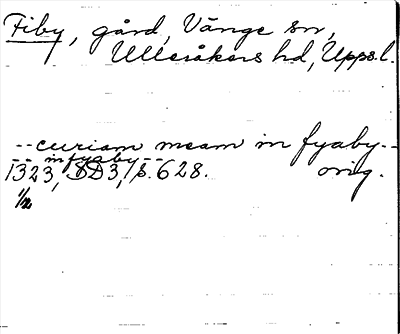 Fiby, gård, Vänge sn,
Ulleråkers hd, Upps.l.
--curiam meam in fyaby--
-- in fyaby --
1323, SD3, s. 628. orig.